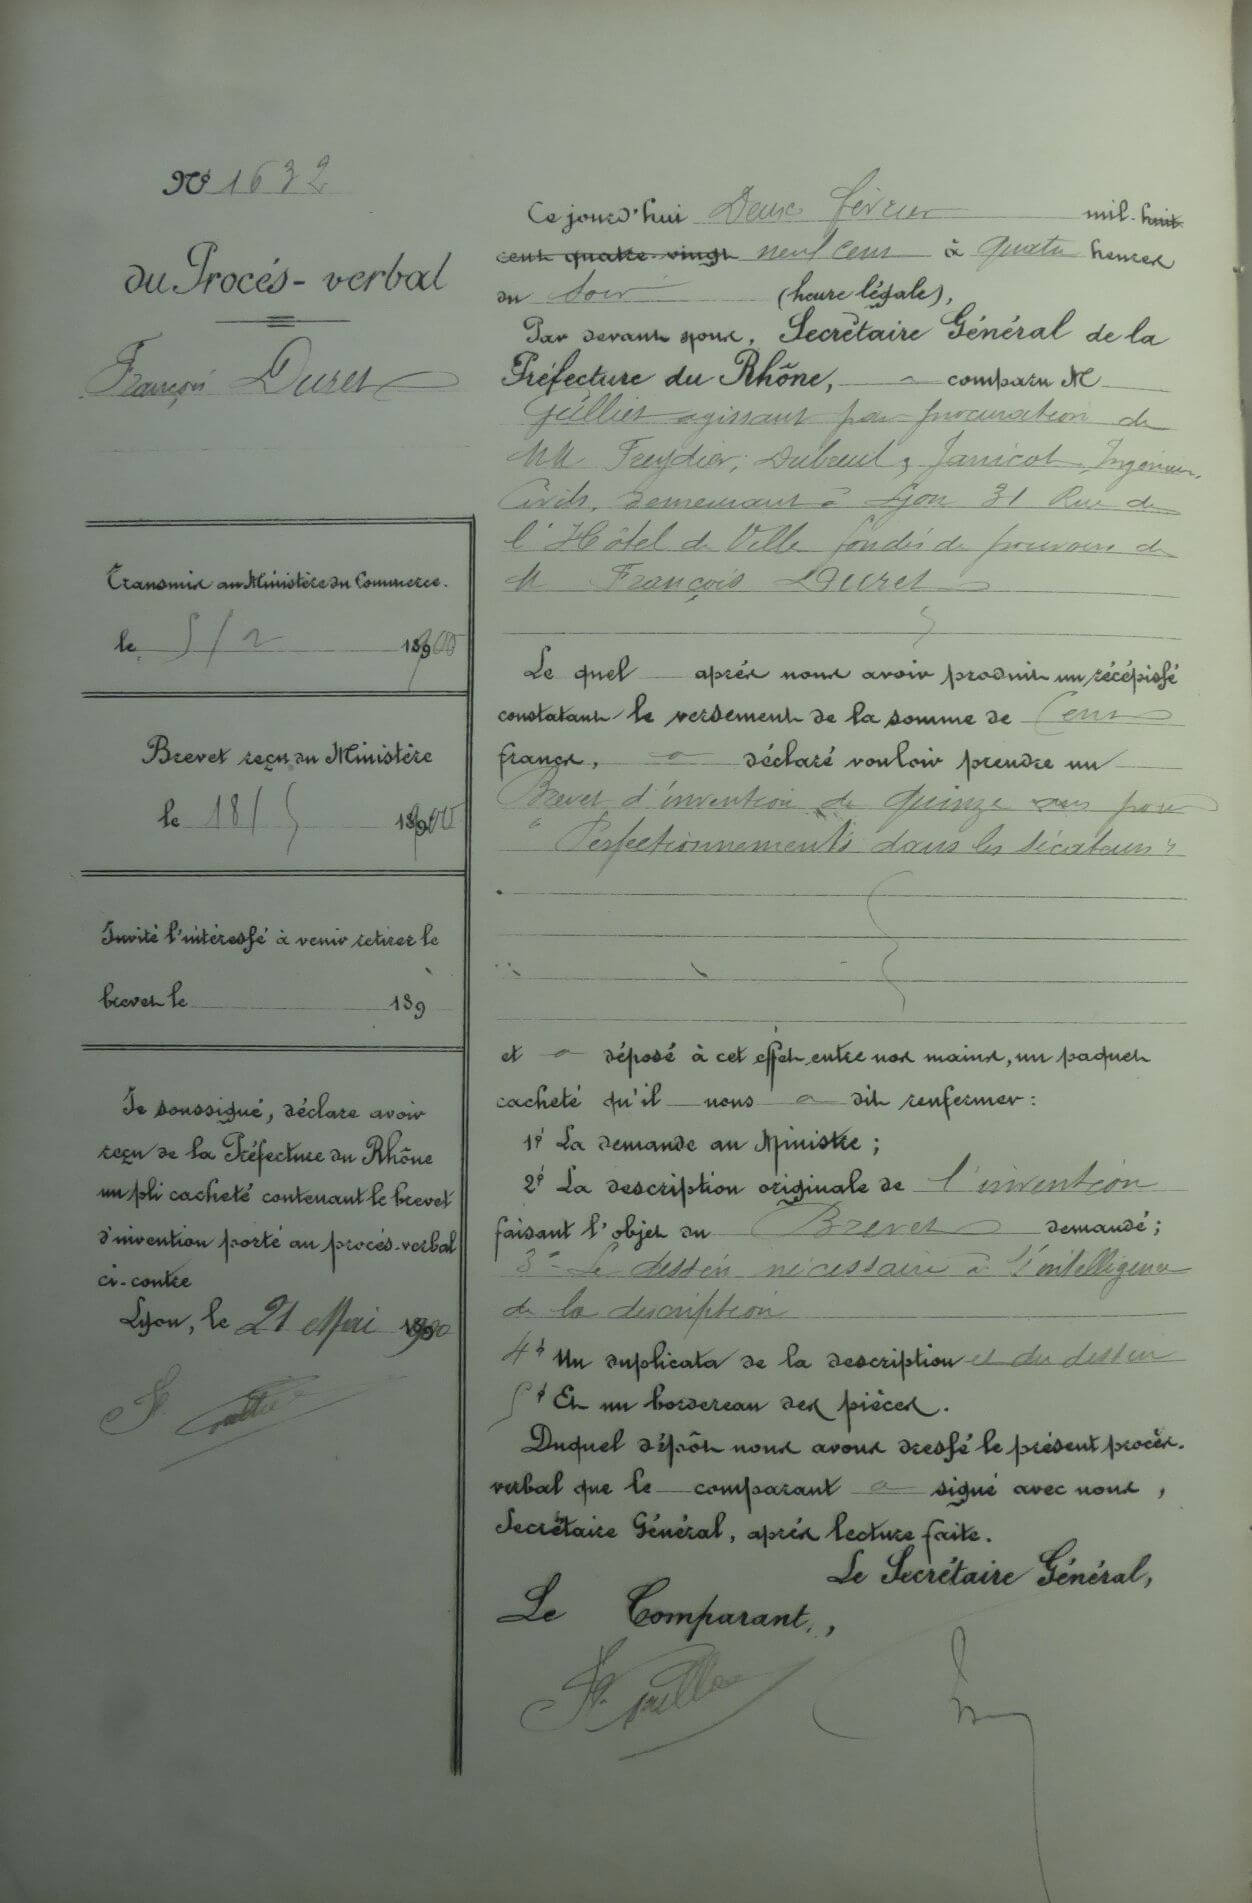 No 1632
du Procès-verbal
François Duret
Transmis au Ministère du Commerce.
le 5/2 1900
Brevet reçu du Ministère
le 18/5 1900
Invité l'intéressé à venir retirer le
brevet le 189
Je soussigné, déclare avoir
reçu de la Préfecture du Rhône
un pli cacheté contenant le brevet
d'invention porté au procès-verbal
ci-contre
Lyon, le 21 Mai 1900
Ce jourd'hui Deux février mil huit
cent quatre vingt neuf cent à quatre heures
du soir (heure légale),
Par devant nous, Secrétaire Général de la
Préfecture du Rhône, a comparu M
agissant par procuration de
MM Freydier, Dubreuil & Janicot, Ingénieurs
Civils, demeurant à Lyon 31 Rue de
l'Hôtel de Ville fondés de pouvoirs de
M François Duret
Le quel après nous avoir produit un récépissé
constatant le versement de la somme de Cent
francs, a déclaré vouloir prendre un
Brevet d'invention de quinze ans pour
"Perfectionnements dans les sécateurs"
et a déposé à cet effet entre nos mains, un paquet
cacheté qu'il nous a dit renfermer:
1° La demande au Ministre;
2° La description originale de l'invention
faisant l'objet du Brevet demandé;
3° Le dessin nécessaire à l'intelligence
de la description
4° Un duplicata de la description et du dessin
5° Et un bordereau des pièces.
Duquel dépôt nous avons dressé le présent procès-
verbal que le comparant a signé avec nous,
Secrétaire Général, après lecture faite.
Le Secrétaire Général,
Le Comparant,